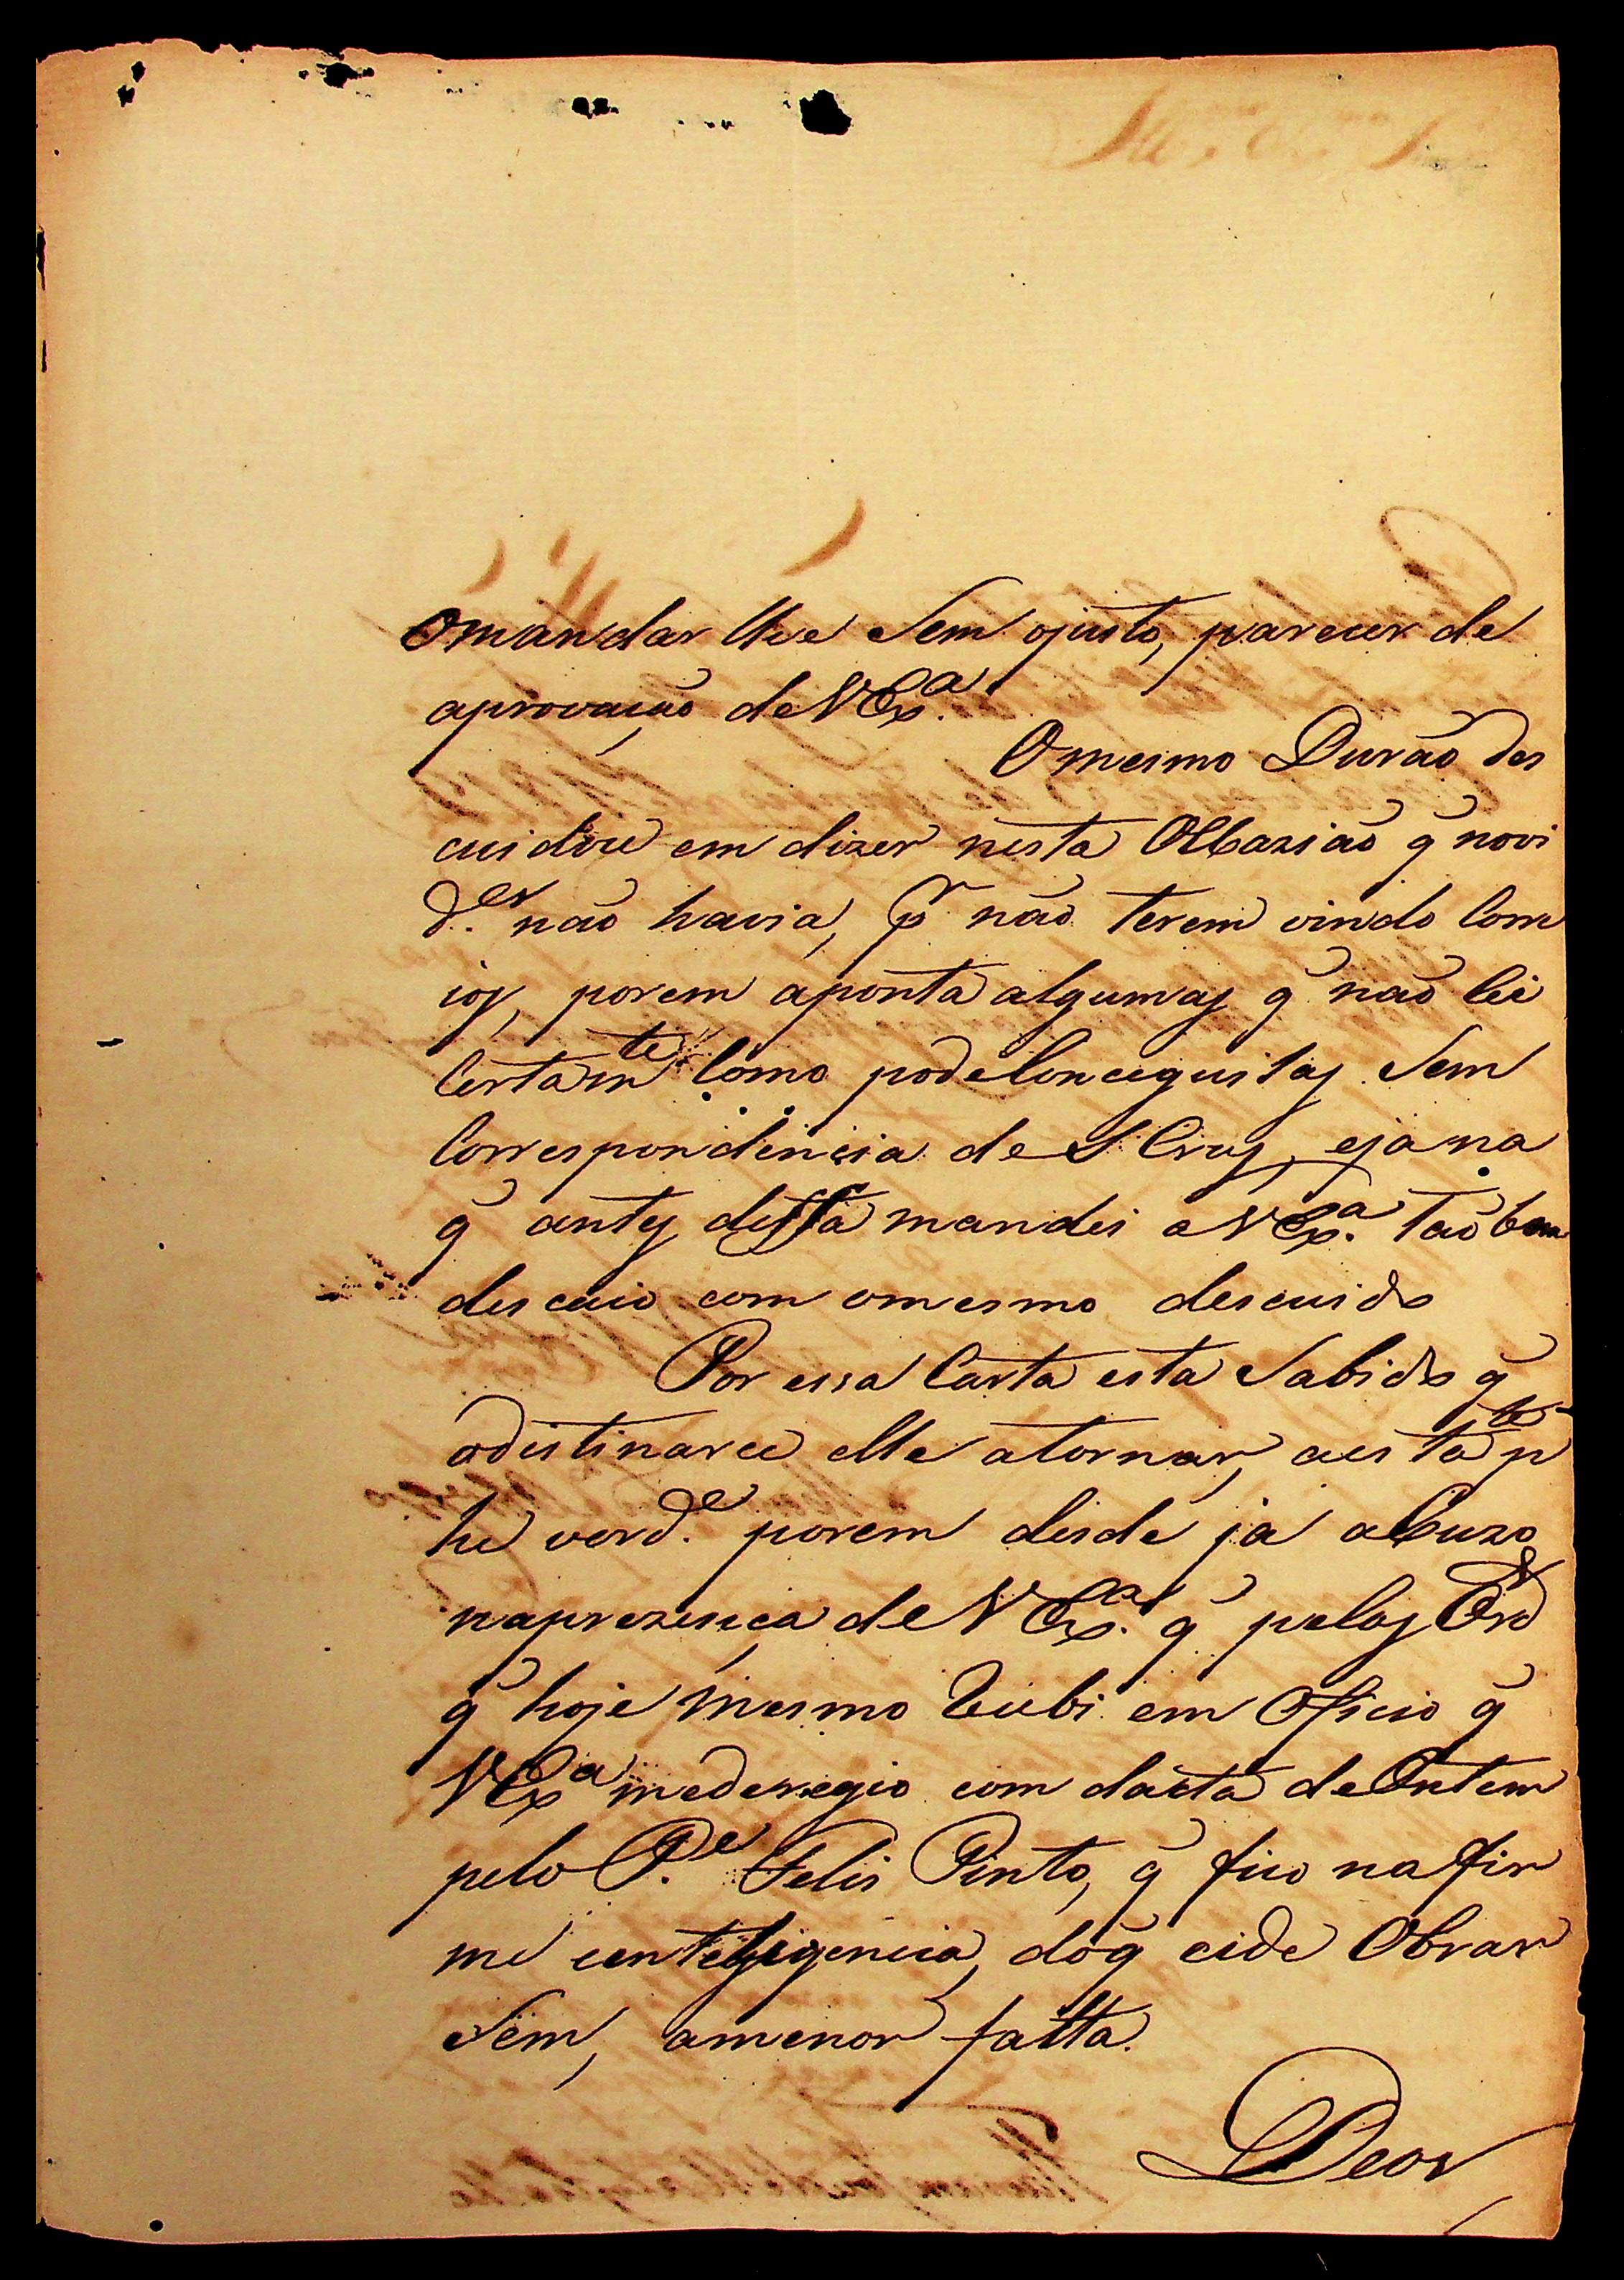 Omandar lhe Sem ojusto, parecer de
aprovação de V Exª.
O mesmo Durão des
cuidou em dizer nesta Occazião q̃ novi
d.es não havia, pr não terem vindo Corre
ios, porem aponta algumas q̃ não sei
Certamte como pode Conceguilas Sem
Correspondencia de S Cruz, eja na
q̃ antes desta mandei a V Exª. Tão bem
des caio com omesmo descuido
Por essa Carta esta Sabido q̃
odistinarce elle atornar, a esta pte
he verd.e porem desde já abuzo
naprezença de V Exª. q̃ pelas Ords
q̃ hoje mesmo Recebi em Oficio q̃
V Exª mederegio com dacta de Ontem
pelo P.e Felis Pinto, q̃ fico na fir
me intelligencia, doq̃ eide Obrar
Sem, amenor falta.
Deos